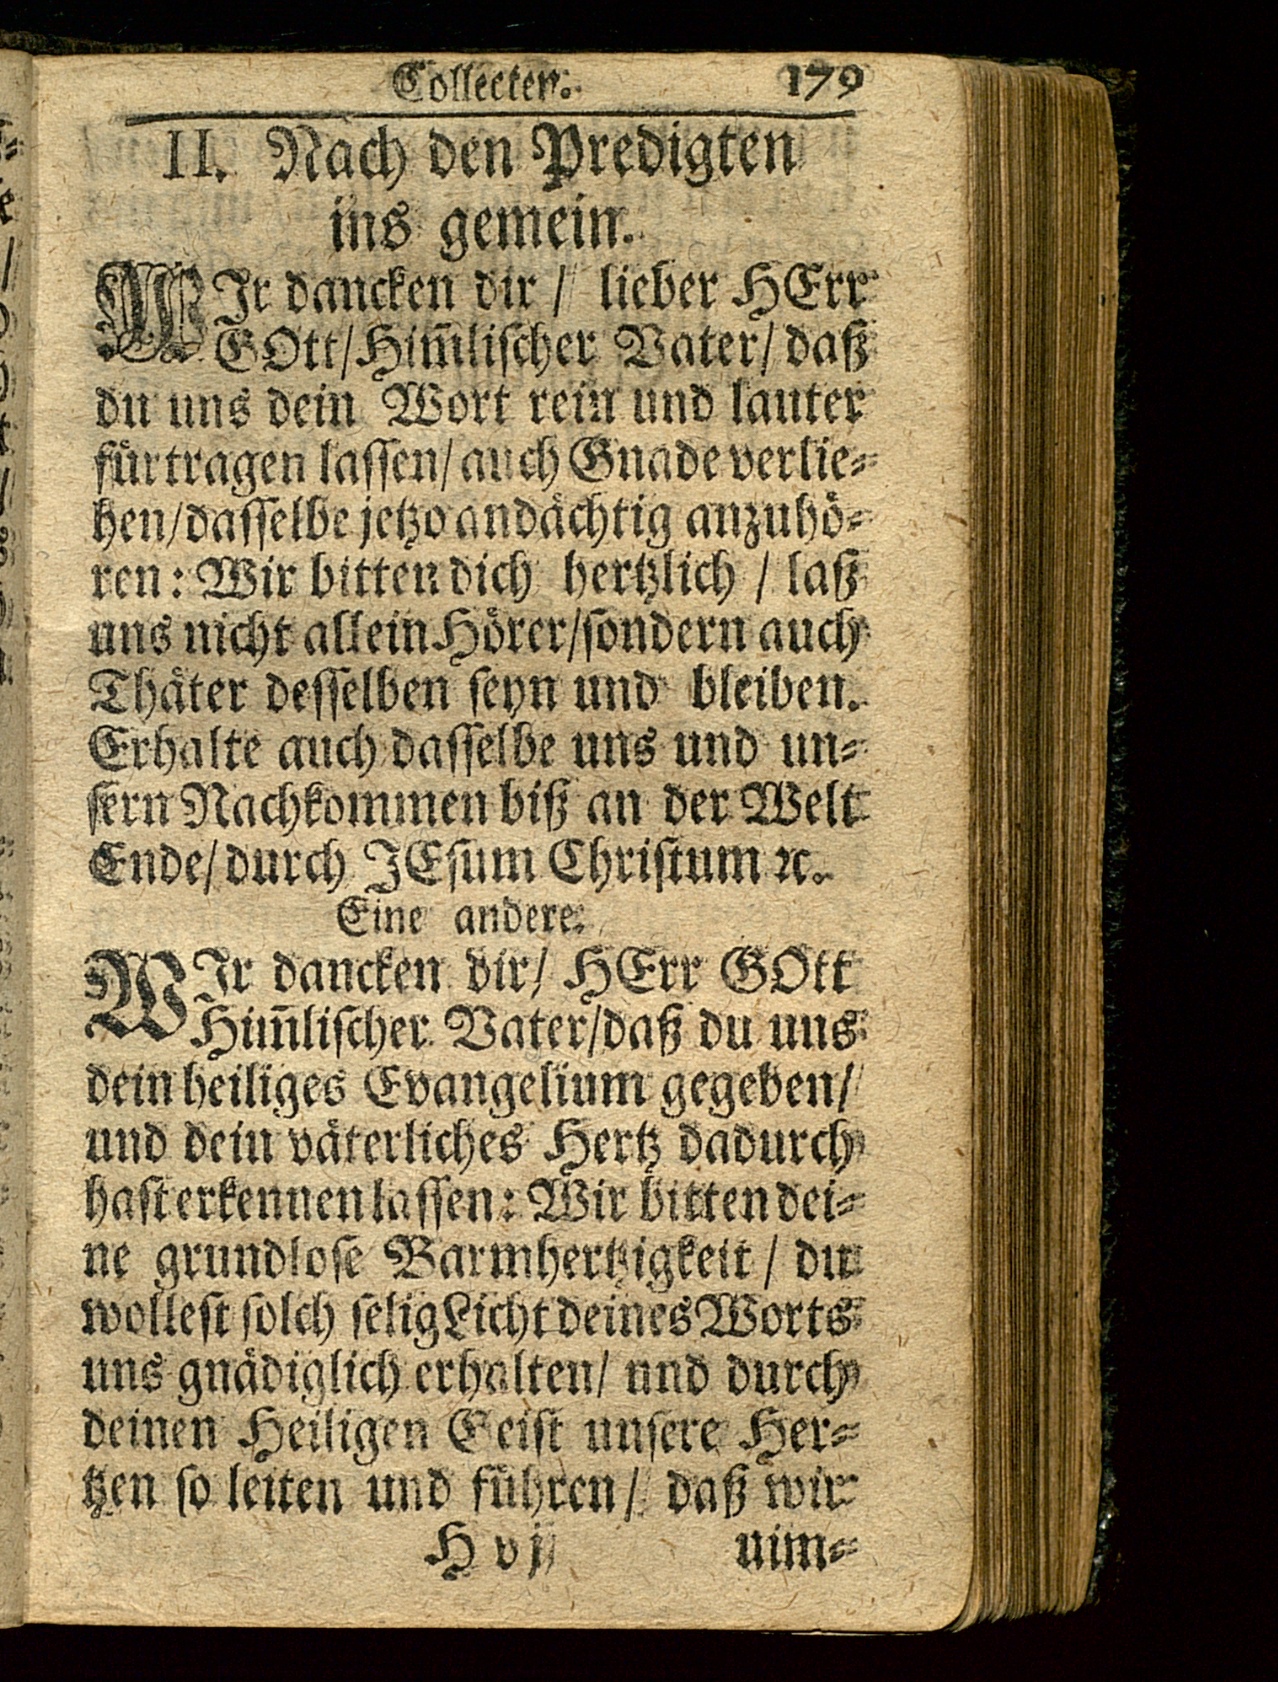 Collecten. 179
II. Nach den Predigten
ins gemein.
WIr dancken dir / lieber HErr
GOtt/Him̃lischer Vater/ daß
du uns dein Wort rein und lauter
fürtragen lassen/ auch Gnade verlie-
hen/dasselbe jetzo andächtig anzuhö-
ren: Wir bitten dich hertzlich / laß
uns nicht allein Hörer/sondern auch
Thäter desselben seyn und bleiben.
Erhalte auch dasselbe uns und un-
sern Nachkommen biß an der Welt
Ende/ durch JEsum Christum ꝛc.
Eine andere.
WIr dancken dir/ HErr GOtt
Him̃lischer Vater/daß du uns
dein heiliges Evangelium gegeben/
und dein väterliches Hertz dadurch
hast erkennen lassen: Wir bitten dei-
ne grundlose Barmhertzigkeit / du
wollest solch selig Licht deines Worts
uns gnädiglich erhalten/ und durch
deinen Heiligen Geist unsere Her-
tzen so leiten und führen/ daß wir
H vj nim-